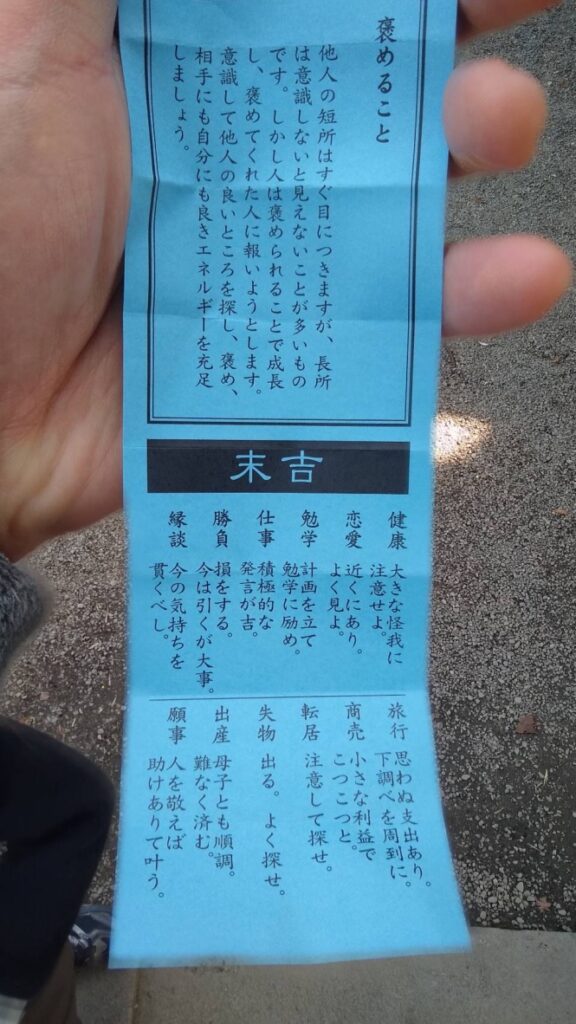 褒めること
他人の短所はすぐ目につきますが、長所
は意識しないと見えないことが多いもの
です。しかし人は褒められることで成長
し、褒めてくれた人に報いようとします。
意識して他人の良いところを探し、褒め、
相手にも自分にも良きエネルギーを充足
しましょう。
末吉
健康 大きな怪我に
注意せよ。
恋愛 近くにあり。
よく見よ。
勉学 計画を立て
勉学に励め。
仕事 積極的な
発言が吉。
勝負 損をする。
今は引くが大事。
縁談 今の気持ちを
貫くべし。
旅行 思わぬ支出あり。
下調べを周到に。
商売 小さな利益で
こつこつと。
転居 注意して探せ。
失物 出る。よく探せ。
出産 母子とも順調。
難なく済む。
願事 人を敬えば
助けありて叶う。